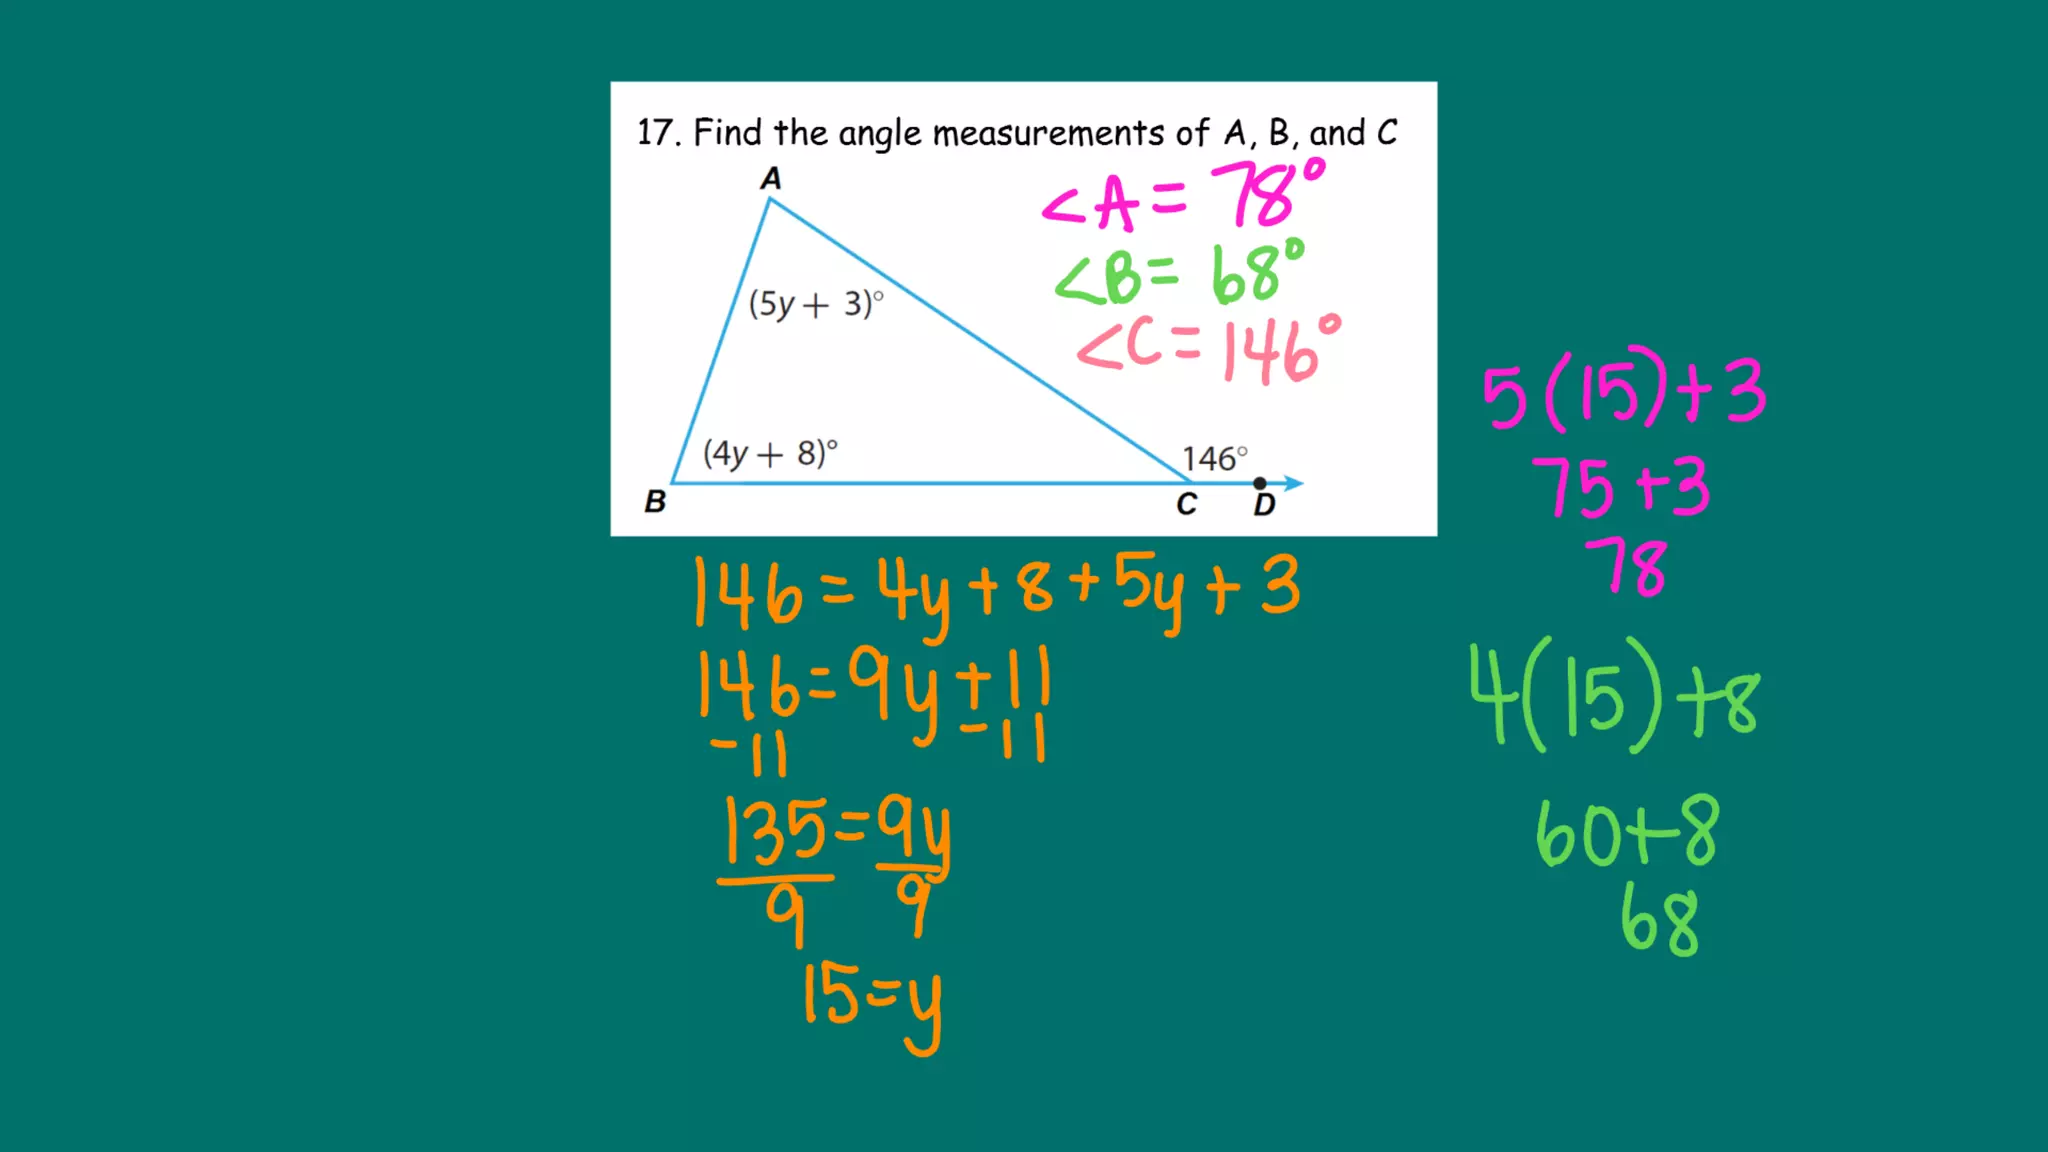 17. Find the angle measurements of A, B, and C
A
<A = 78°
<B = 68°
<C = 146°
(5y + 3)°
(4y + 8)°
146°
B
C
D
146 = 4y + 8 + 5y + 3
146 = 9y + 11
-11 -11
135 = 9y
9 9
15 = y
5(15)+3
75+3
78
4(15)+8
60+8
68